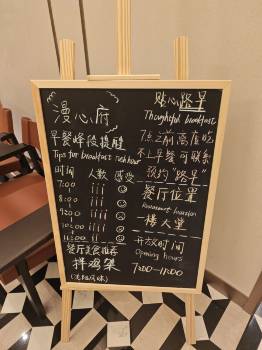 漫心府
早餐峰段提醒
Tips for breakfast rush hour
时间 人数 感受
7:00
8:00
9:00
10:00
11:00
餐厅美食推荐
拌鸡架
(沈阳风味)
贴心路早
Thoughtful breakfast
7点之前离店吃
不上早餐可联系
预约“路早”
餐厅位置
Restaurant location
一楼人堂
开放时间
Opening hours
7:00-11:00